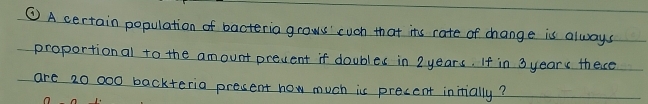 ① A certain population of bacteria grows such that its rate of change is always
proportional to the amount present if doubles in 2 years. If in 3 years there
are 20 000 backteria present how much is present initially?